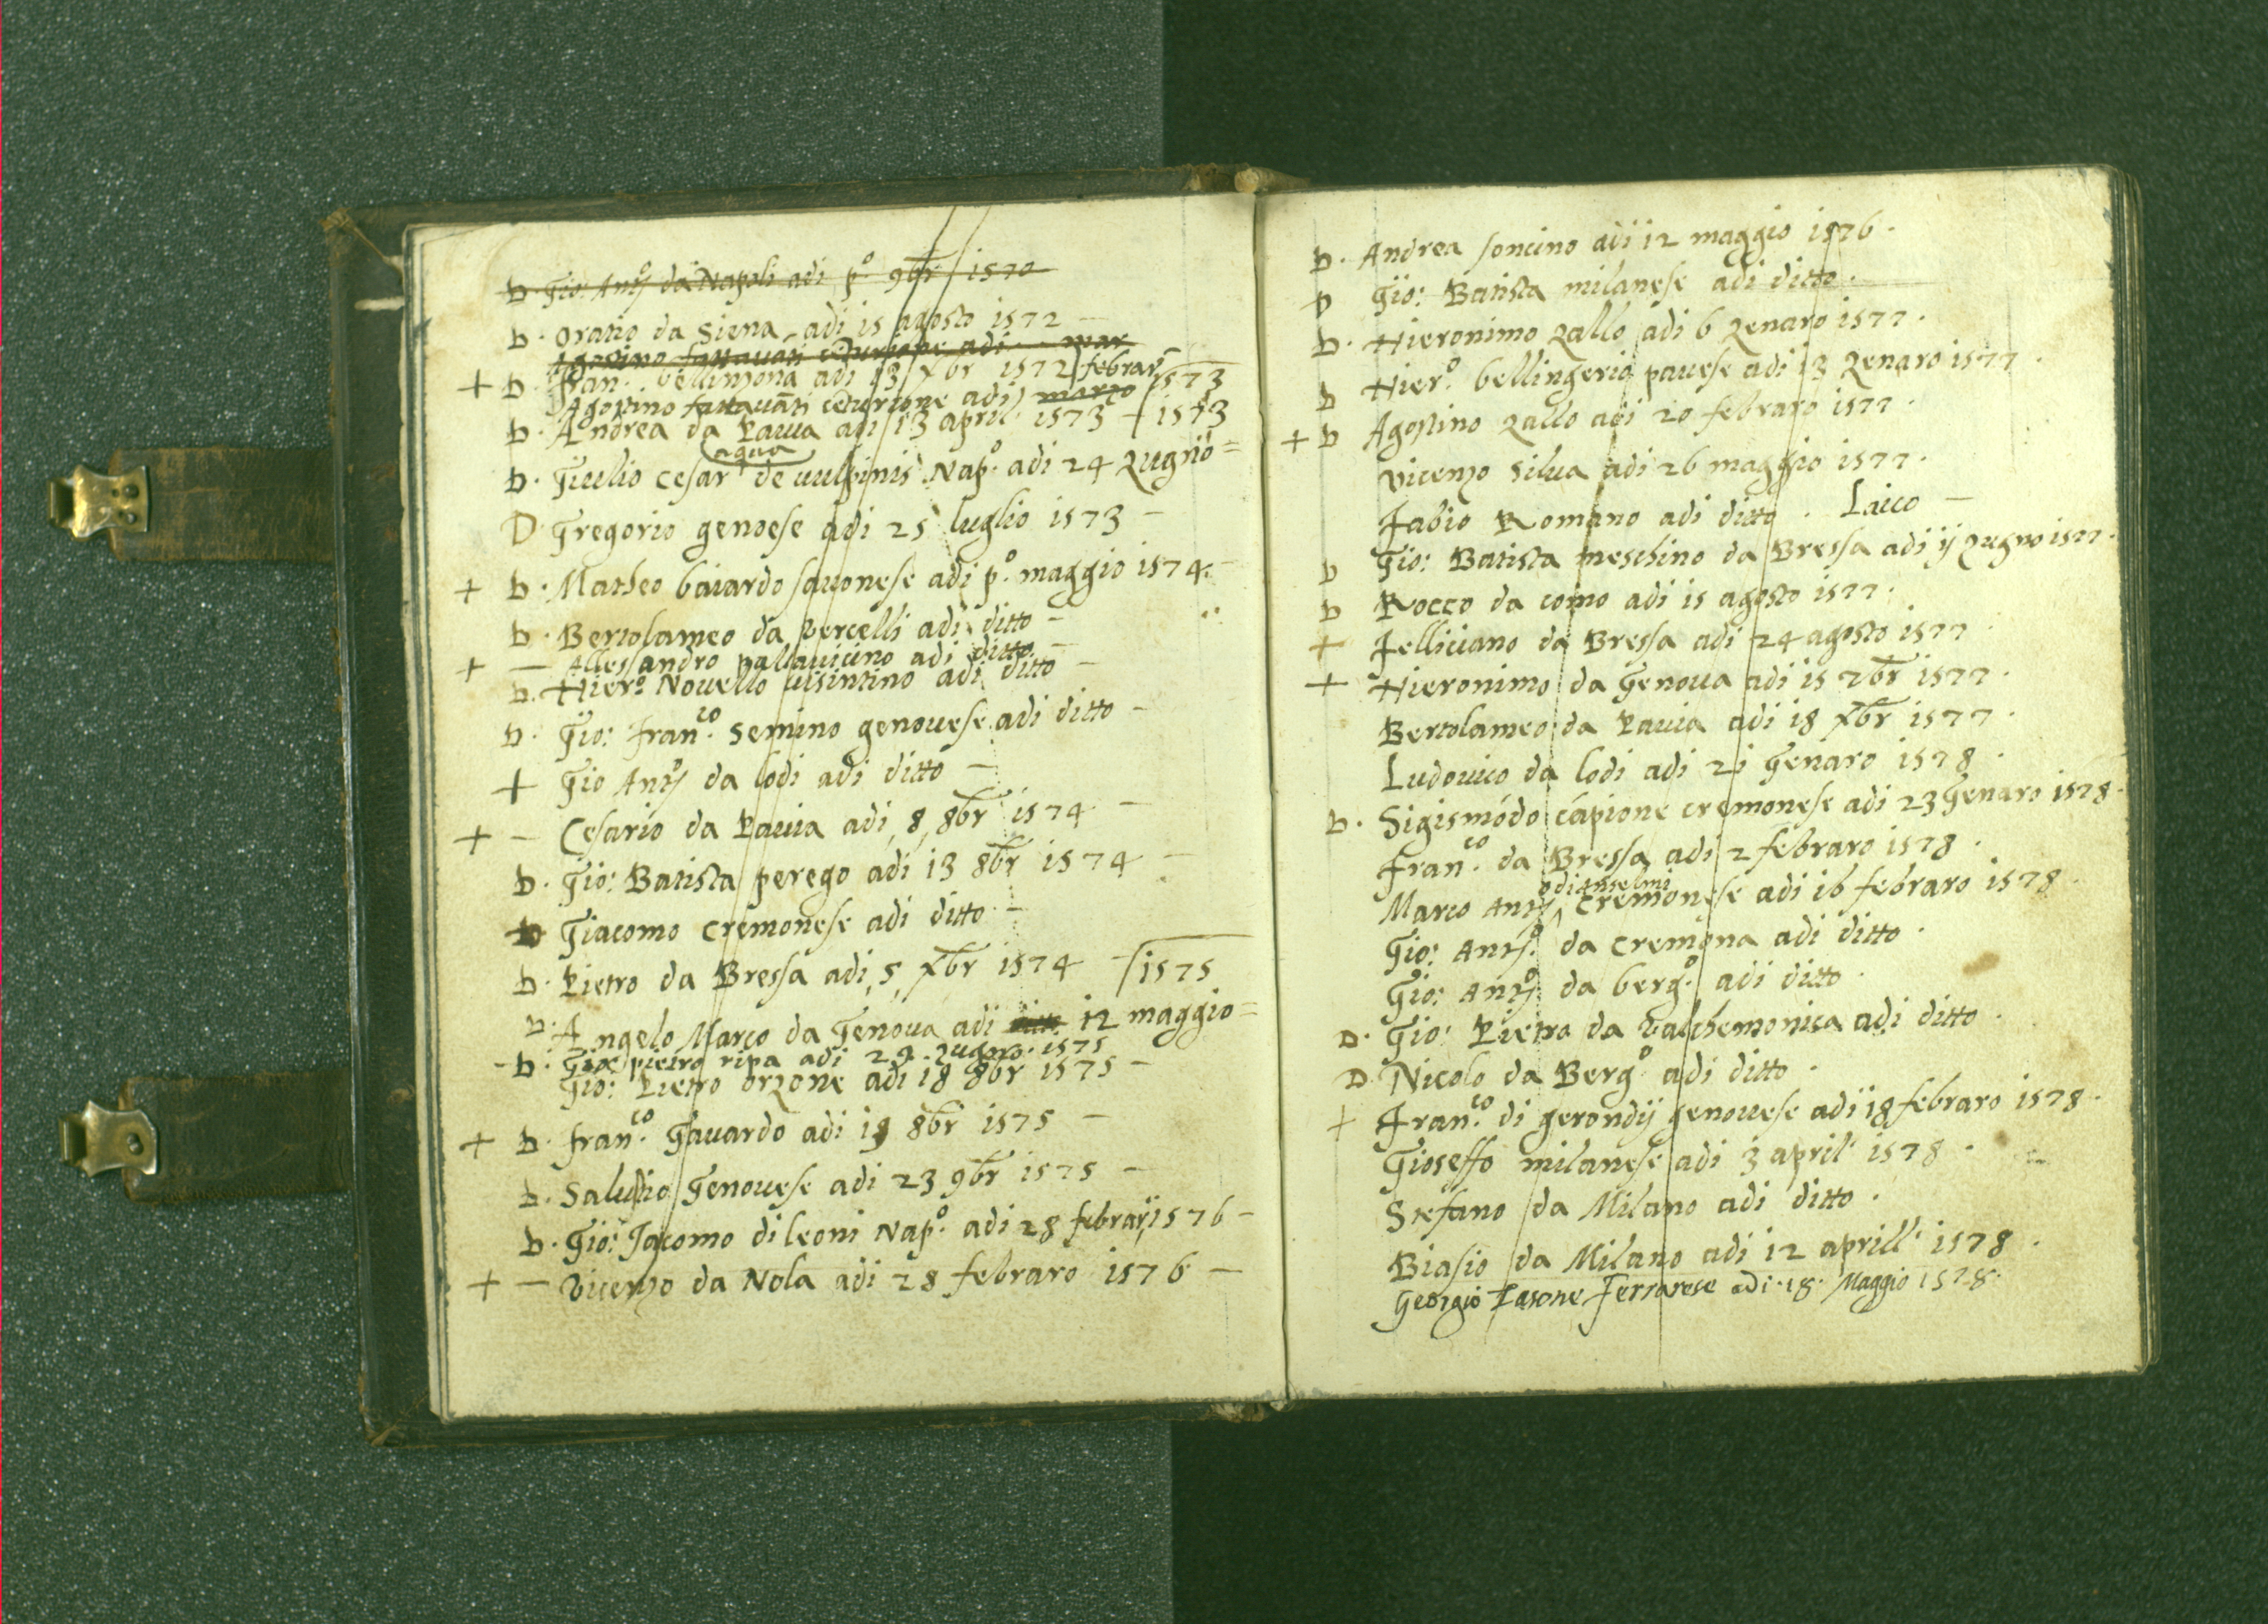 D. Gio: Ant.º da Napoli adi p.º 9br 1570
D. Oratio da Siena adi 15 agosto 1572 –
Agostino adi mar
+ D Fran. bellinzona adi 13 Xbr 1572 febrar.
Agostino adi marzo 1573
D. Andrea da Pavia adi 13 april 1573 – 1573
aqua
D. Giulio Cesar de vulpinis Nap.º adi 24 zugno =
D Gregorio genoese adi 25 luglio 1573 –
+ D. Matheo baiardo savonese adi p.º maggio 1574. –
D. Bertolameo da vercelli adi ditto –
+ – Allessandro pallavicino adi ditto –
D. Hier.º Novello visintino adi ditto –
D. Gio: Fran.co Semino genovese adi ditto –
+ Gio Ant.º da lodi adi ditto –
+ – Cesario da Pavia adi 8 8br 1574 –
D. Gio: Batista perego adi 13 8br 1574 –
D Giacomo cremonese adi ditto –
D. Pietro da Bressa adi 5 Xbr 1574 – 1575
D. Angelo Marco da Genova adi 12 maggio =
– D. pietro ripa adi 29 zugno 1575
Gio: Pietro orzone adi 18 8br 1575 –
+ D. Fran.co Gavardo adi 19 8br 1575 –
D. Salutio Genovese adi 23 9br 1575 –
D. Gio: Jacomo di leoni Nap.º adi 28 febrar, 1576 –
+ – Vicenzo da Nola adi 28 febraro 1576 –
D. Andrea soncino adi 12 maggio 1576.
D Gio: Batista milanese adi ditto.
D. Hieronimo zallo adi 6 zenaro 1577.
D Hier.º bellingerio pavese adi 13 zenaro 1577.
+ D Agostino zallo adi 20 febraro 1577.
Vicenzo Silva adi 26 maggio 1577.
Fabio Romano adi ditto. Laico –
D Gio: Batista meschino da Bressa adi ij zugno 1577.
D Rocco da como adi 15 agosto 1577.
+ Felliciano da Bressa adi 24 agosto 1577
+ Hieronimo da Genova adi 15 7br 1577.
Bertolameo da Pavia adi 18 Xbr 1577.
Ludovico da lodi adi 21 Genaro 1578.
D. Sigismõdo capione cremonese adi 23 Genaro 1578.
Fran.co da Bressa adi 2 febraro 1578.
odi anselmi
Marco Ant.º ^ Cremonese adi 16 febraro 1578.
Gio: Ant.º da Cremona adi ditto.
Gio: Ant.º da berg.º adi ditto.
D. Gio: Pietro da valchemonica adi ditto.
D Nicolo da Berg.º adi ditto.
+ Fran.co di gerondij genovese adi 18 febraro 1578.
Gioseffo milanese adi 3 april 1578.
Stefano da Milano adi ditto.
Biasio da Milano adi 12 aprill 1578.
Georgio Ferrarese adi. 18. Maggio 1578.